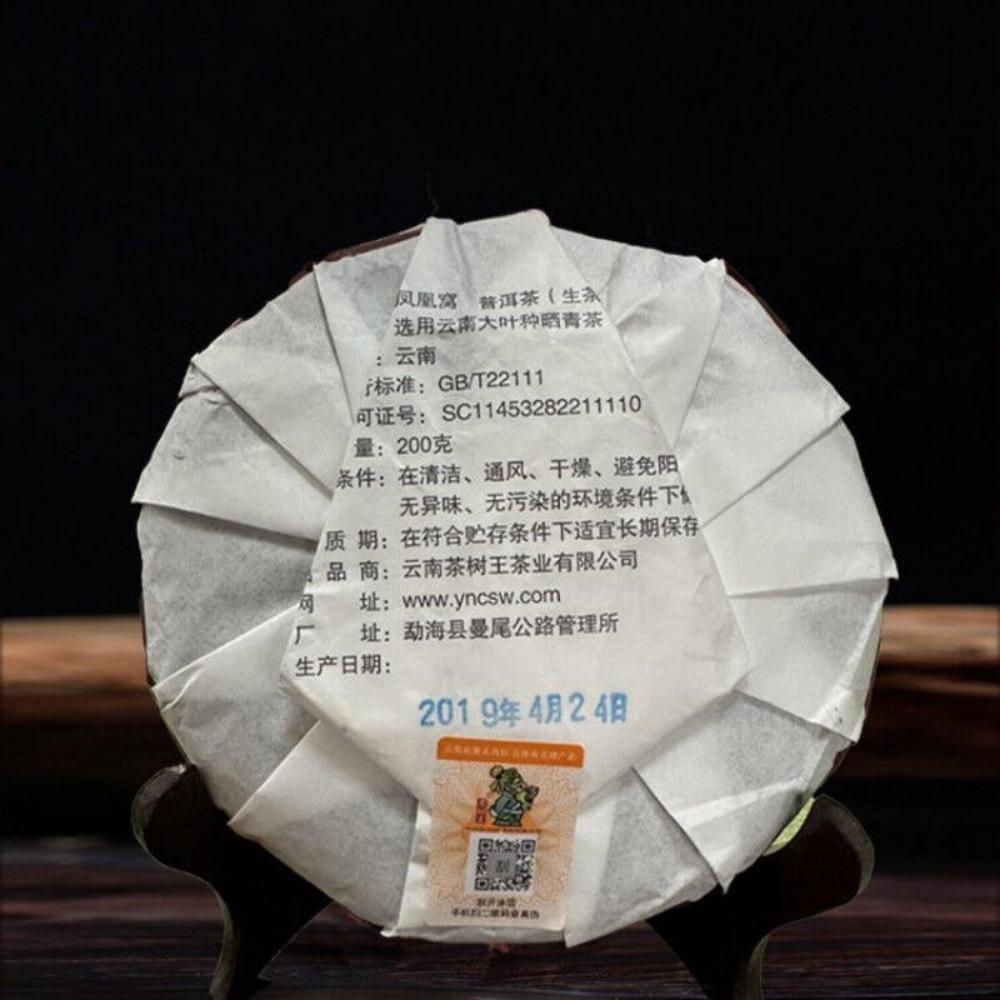 凤凰窝 普洱茶（生茶
选用云南大叶种晒青茶
：云南
行标准：GB/T22111
可证号：SC11453282211110
量：200克
条件：在清洁、通风、干燥、避免阳
无异味、无污染的环境条件下
质 期：在符合贮存条件下适宜长期保存
品 商：云南茶树王茶业有限公司
网 址：www.yncsw.com
厂 址：勐海县曼尾公路管理所
生产日期：
2019年4月24日
云南省著名商标 云南省名牌产品
刮
刮开涂层
手机扫二维码查真伪